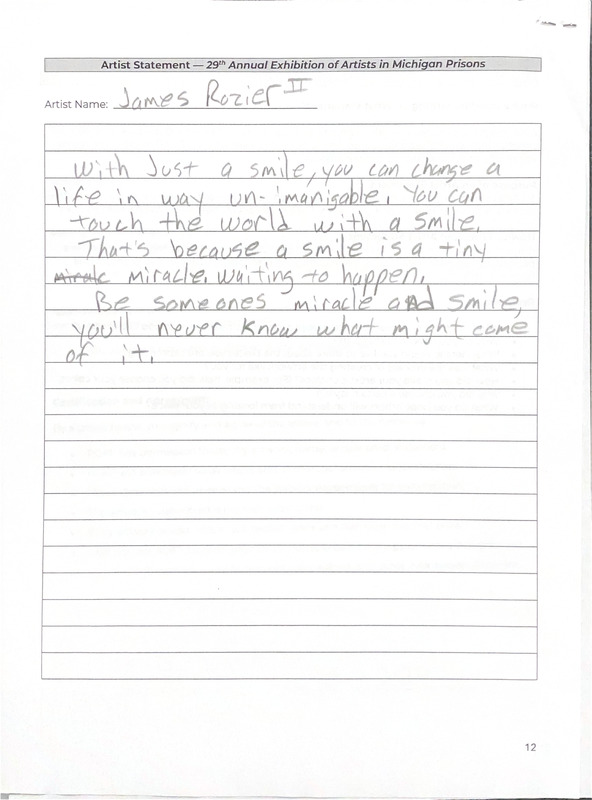 Artist Statement — 29th Annual Exhibition of Artists in Michigan Prisons
Artist Name: James Rozier II
With Just a smile, you can change a
life in way un-imanigable. You can
touch the world with a smile.
That's because a smile is a tiny
miracle. waiting to happen.
Be someones miracle and smile,
you'll never know what might come
of it.
12